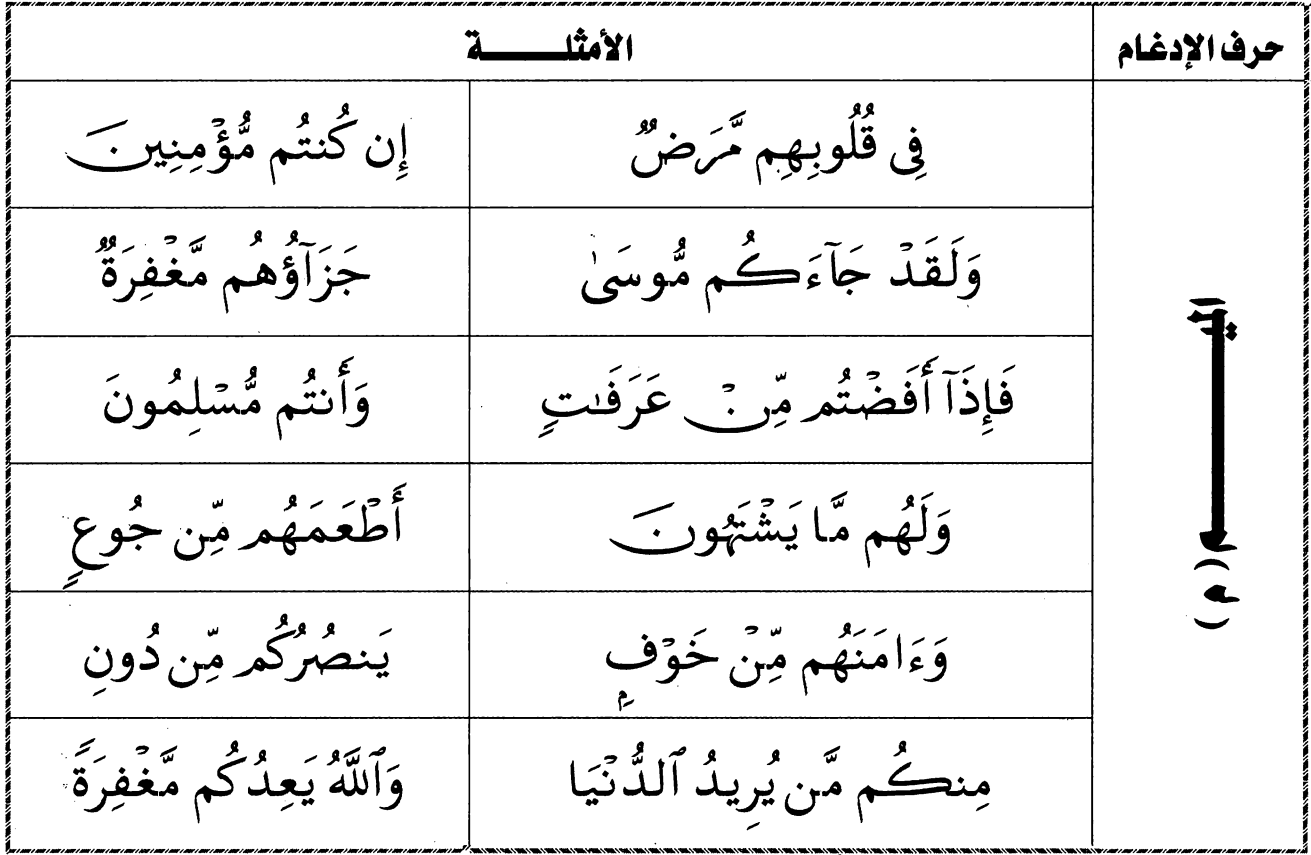 حرف الإدغام الأمثلـــــــة
الميـــــــم (م)
فِى قُلُوبِهِم مَّرَضٌ إِن كُنتُم مُّؤْمِنِينَ
وَلَقَدْ جَآءَكُم مُّوسَىٰ جَزَآؤُهُم مَّغْفِرَةٌ
فَإِذَآ أَفَضْتُم مِّنْ عَرَفَـٰتٍ وَأَنتُم مُّسْلِمُونَ
وَلَهُم مَّا يَشْتَهُونَ أَطْعَمَهُم مِّن جُوعٍ
وَءَامَنَهُم مِّنْ خَوْفٍۭ يَنصُرُكُم مِّن دُونِ
مِنكُم مَّن يُرِيدُ ٱلدُّنْيَا وَٱللَّهُ يَعِدُكُم مَّغْفِرَةً